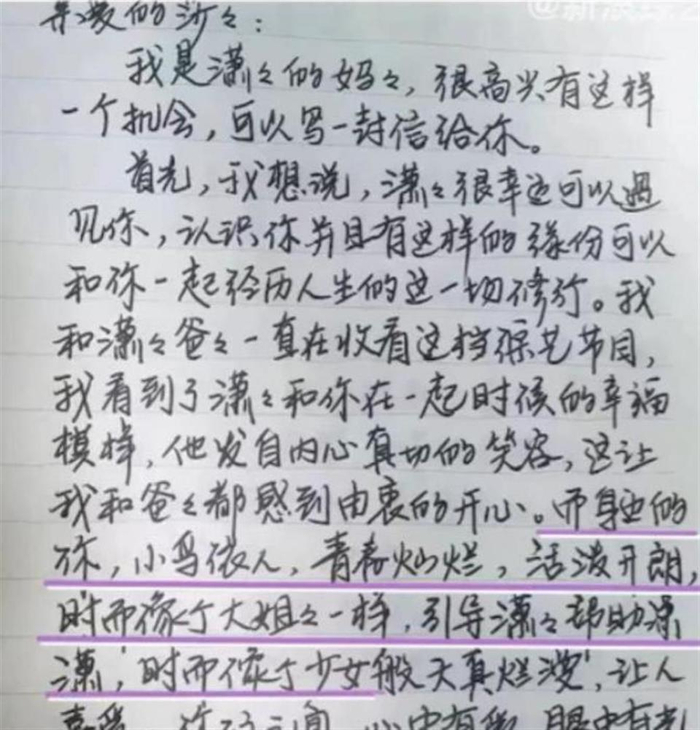 @新浪综艺
亲爱的沙々：
我是潇々的妈々，很高兴有这样
一个机会，可以写一封信给你。
首先，我想说，潇々很幸运可以遇
见你，认识你并且有这样的缘份可以
和你一起经历人生的这一切修行。我
和潇々爸々一直在收看这档综艺节目，
我看到了潇々和你在一起时候的幸福
模样，他发自内心真切的笑容，这让
我和爸々都感到由衷的开心。而身边的
你，小鸟依人，青春灿烂，活泼开朗，
时而像个大姐々一样，引导潇々帮助潇
潇，时而像个少女般天真烂漫，让人
喜爱 你们之间 心中有爱 眼中有光